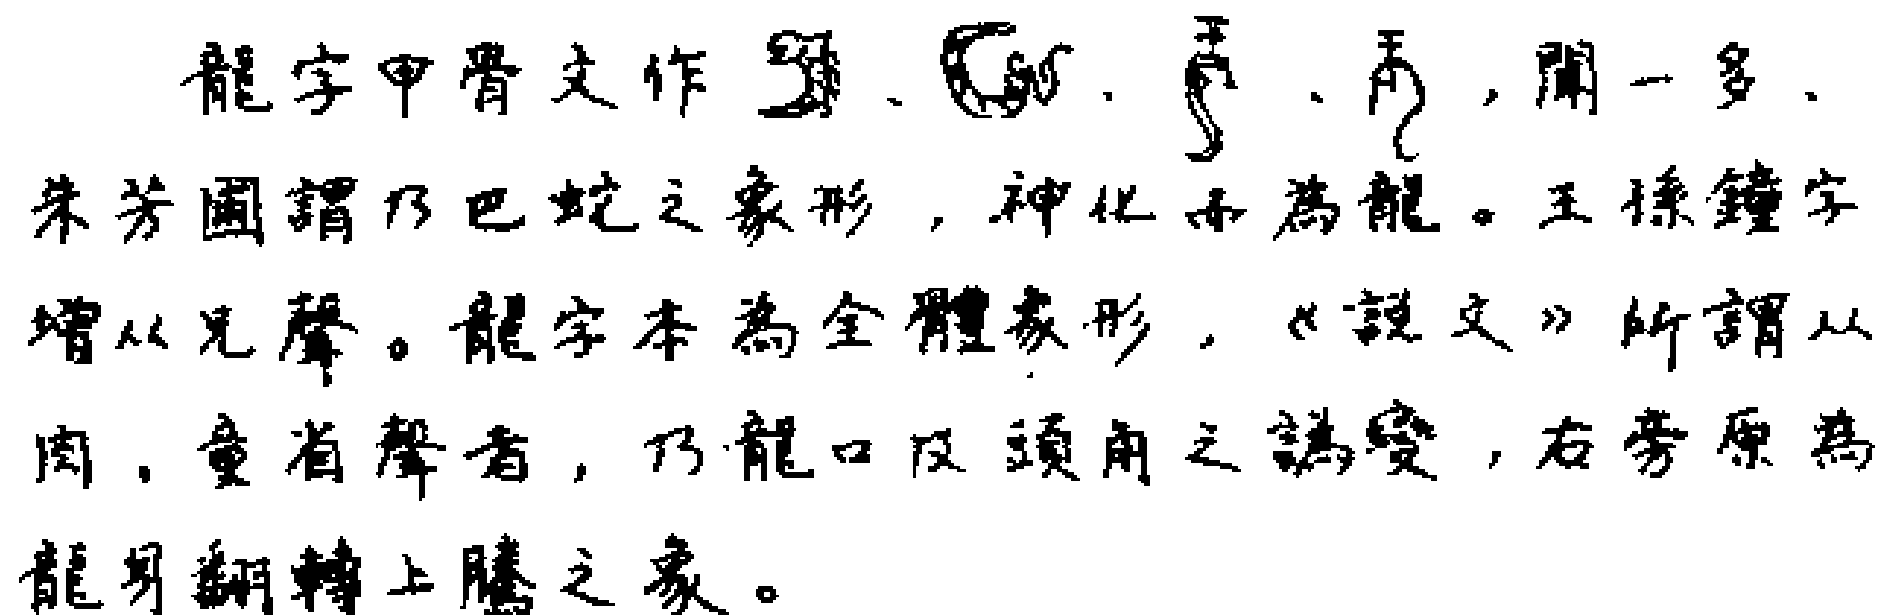 龍字甲骨文作、、、，聞一多、
朱芳圃謂乃巴蛇之象形，神化而為龍。王孫鐘字
增从兄聲。龍字本為全體象形，《説文》所謂从
肉，童省聲者，乃龍口及頭角之譌變，右旁原為
龍身翻轉上騰之象。